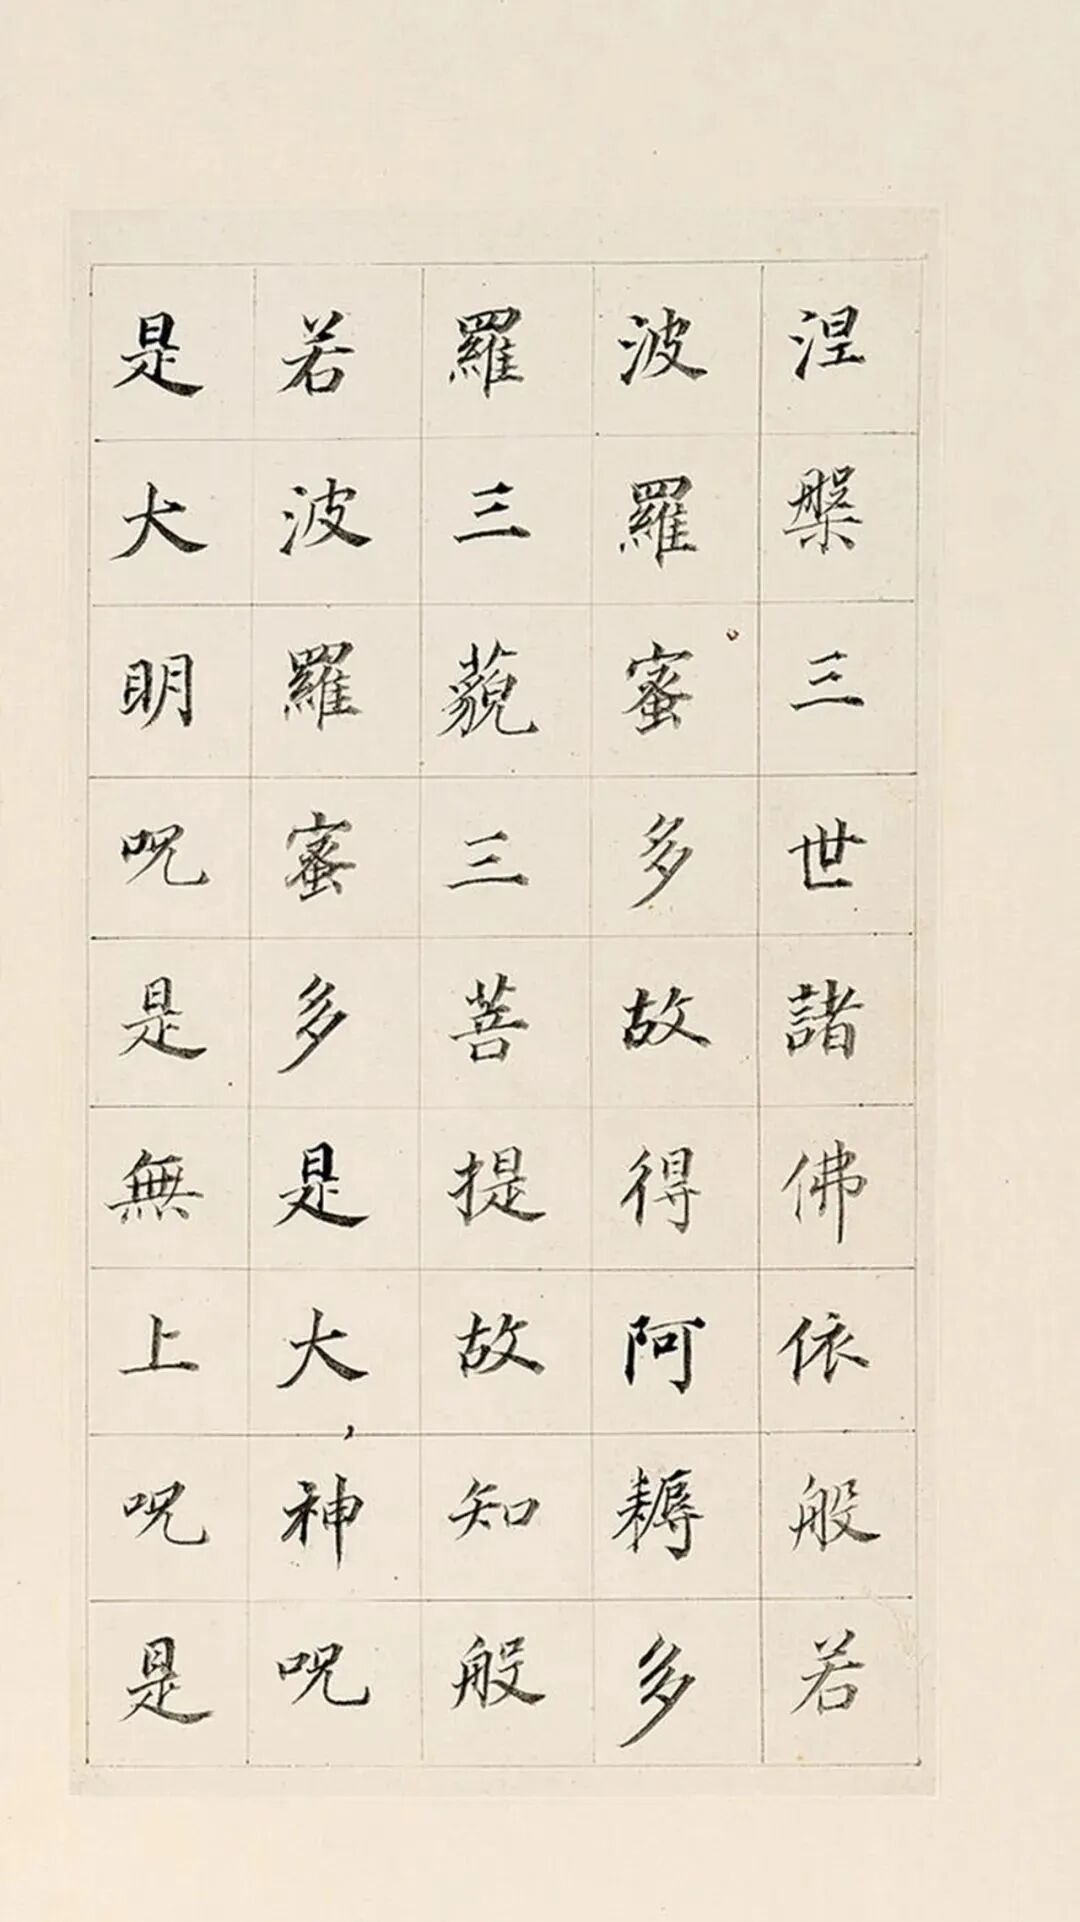 涅槃三世諸佛依般若
波羅蜜多故得阿耨多
羅三藐三菩提故知般
若波羅蜜多是大神呪
是大明呪是無上呪是